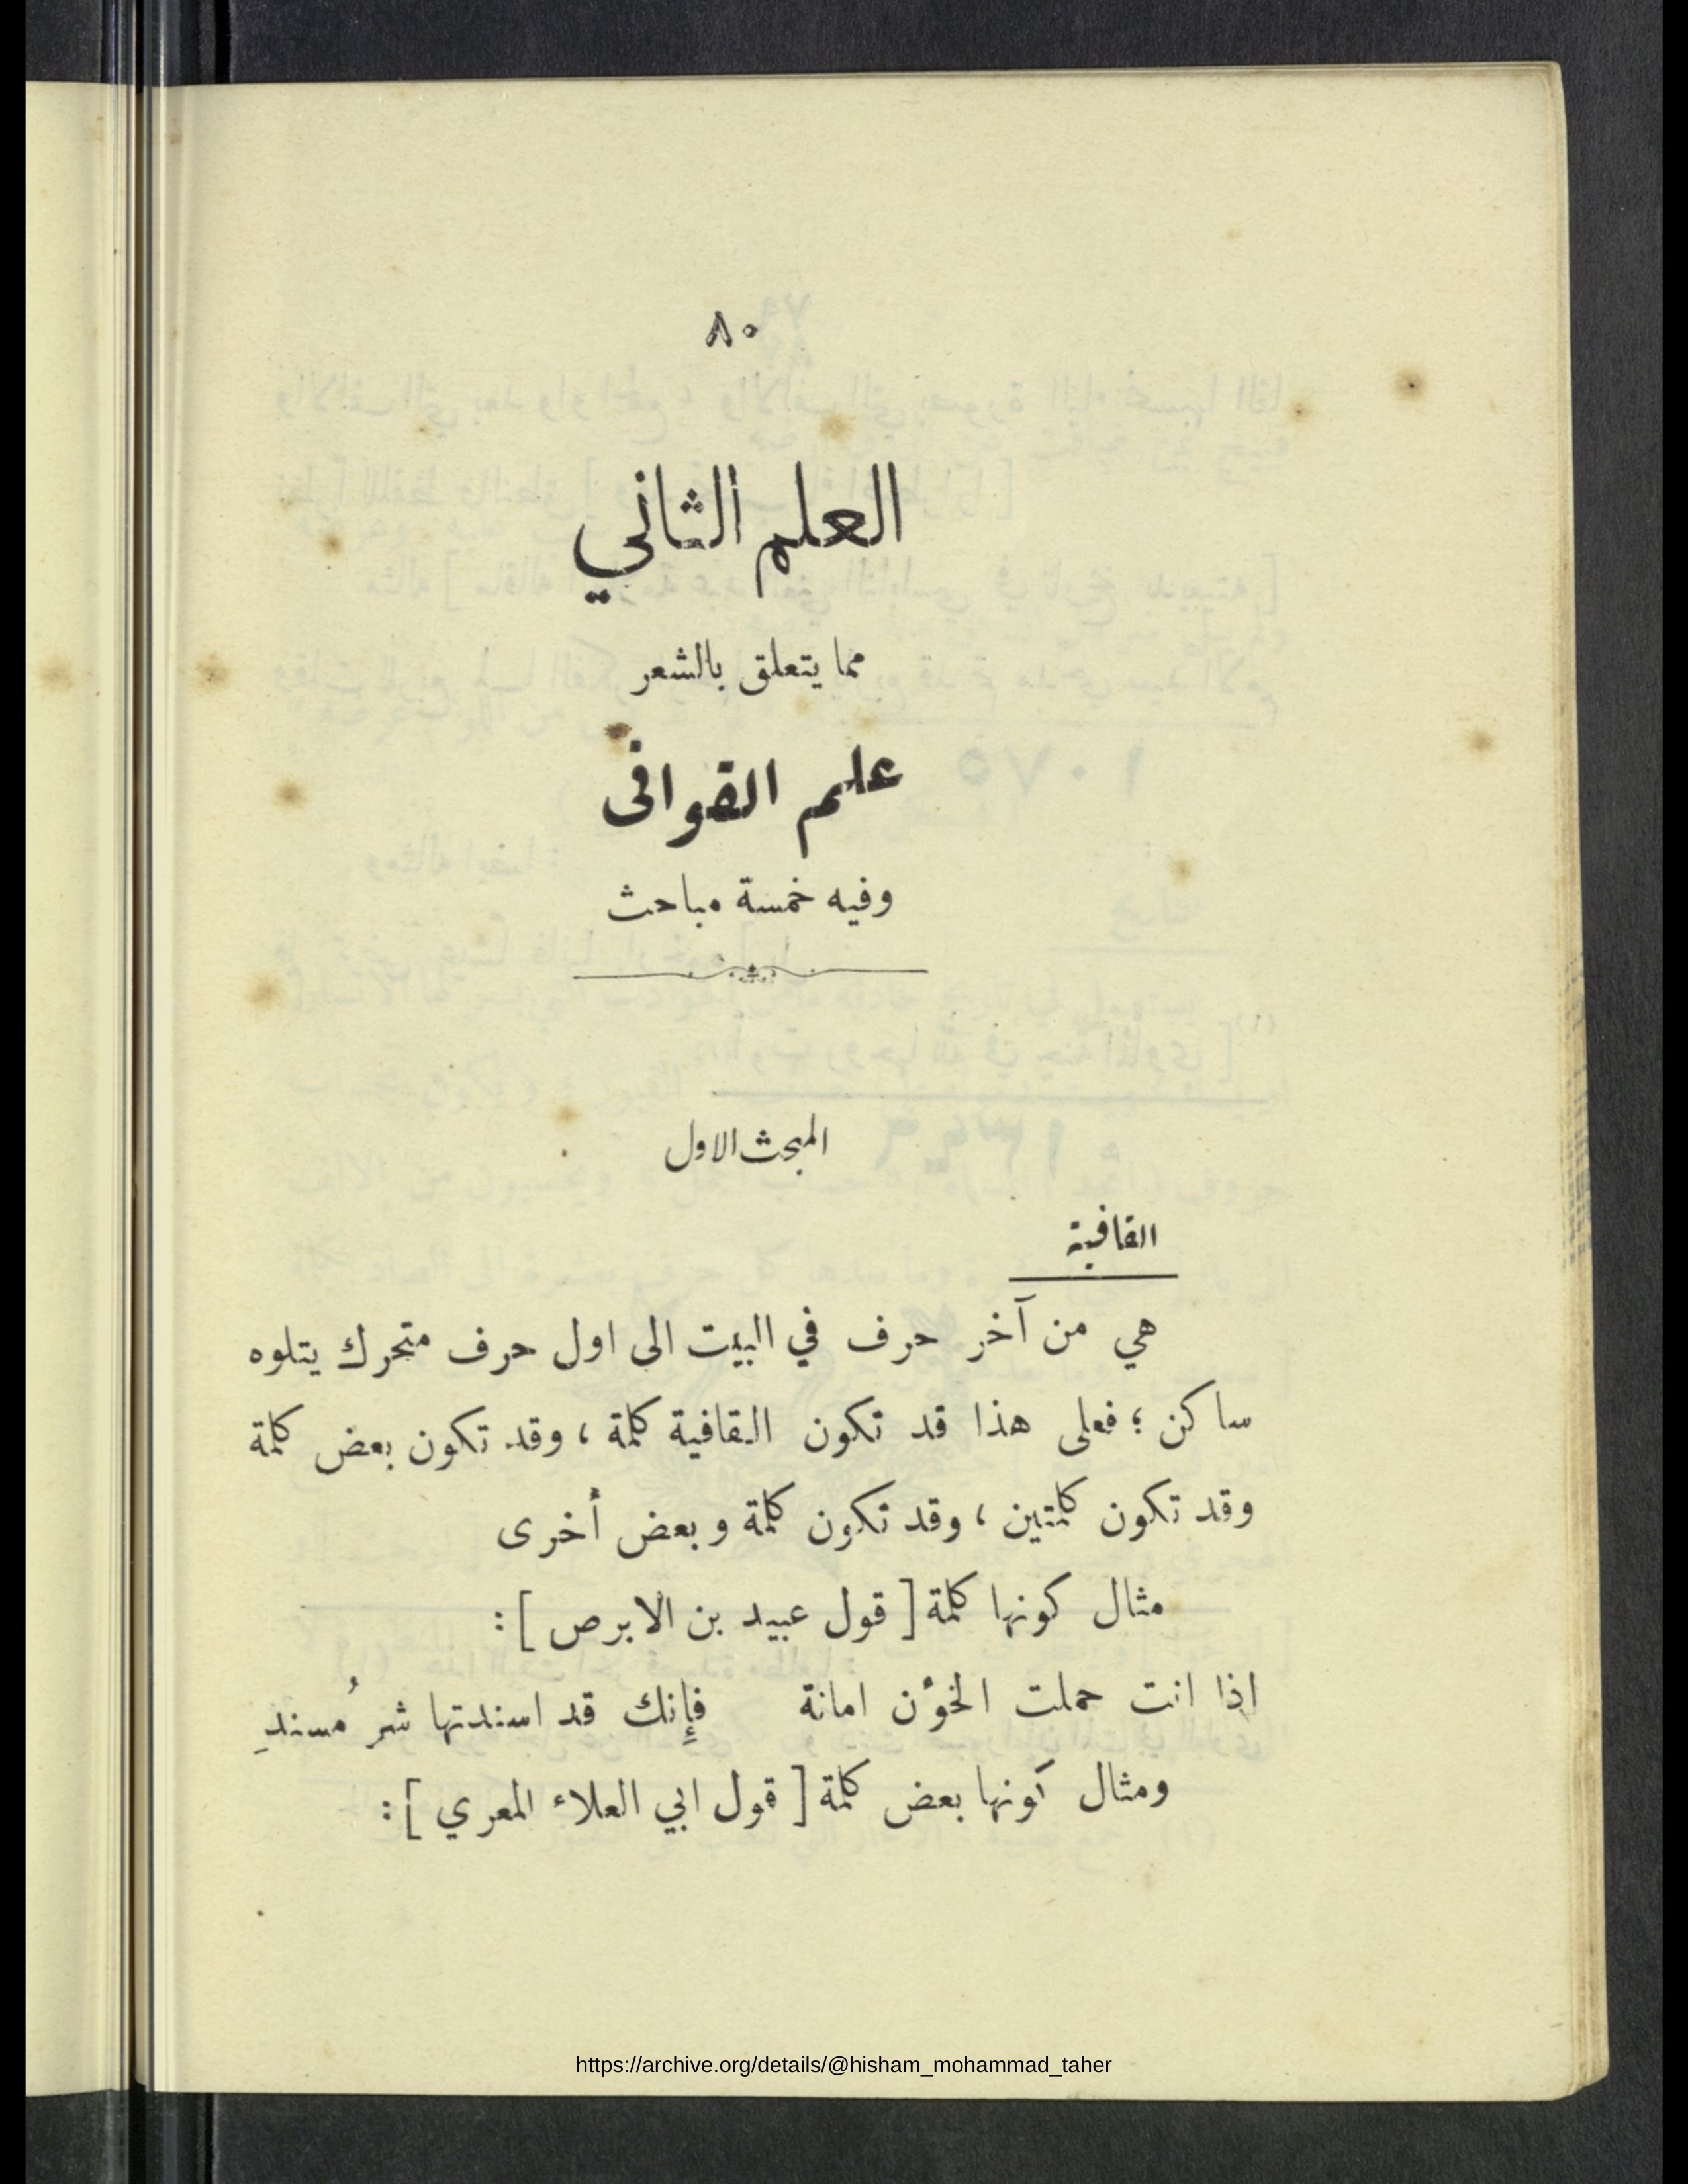 ٨٠
العلم الثاني
مما يتعلق بالشعر
علم القوافى
وفيه خمسة مباحث
المبحث الاول
القافية
هي من آخر حرف في البيت الى اول حرف متحرك يتلوه
ساكن ؛ فعلى هذا قد تكون القافية كلمة ، وقد تكون بعض كلمة
وقد تكون كلمتين ، وقد تكون كلمة وبعض أخرى
مثال كونها كلمة [ قول عبيد بن الابرص ] :
اذا انت حملت الخؤن امانة فإنك قد اسندتها شر مُسندِ
ومثال كونها بعض كلمة [ قول ابي العلاء المعري ] :
https://archive.org/details/@hisham_mohammad_taher